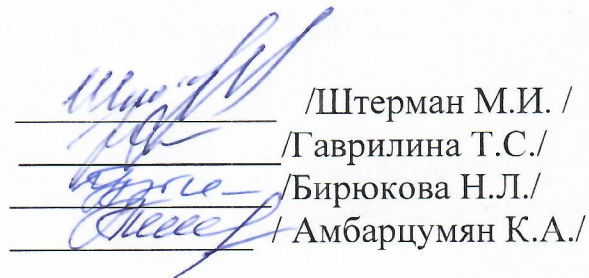 /Штерман М.И. /
/Гаврилина Т.С./
/Бирюкова Н.Л./
/ Амбарцумян К.А./